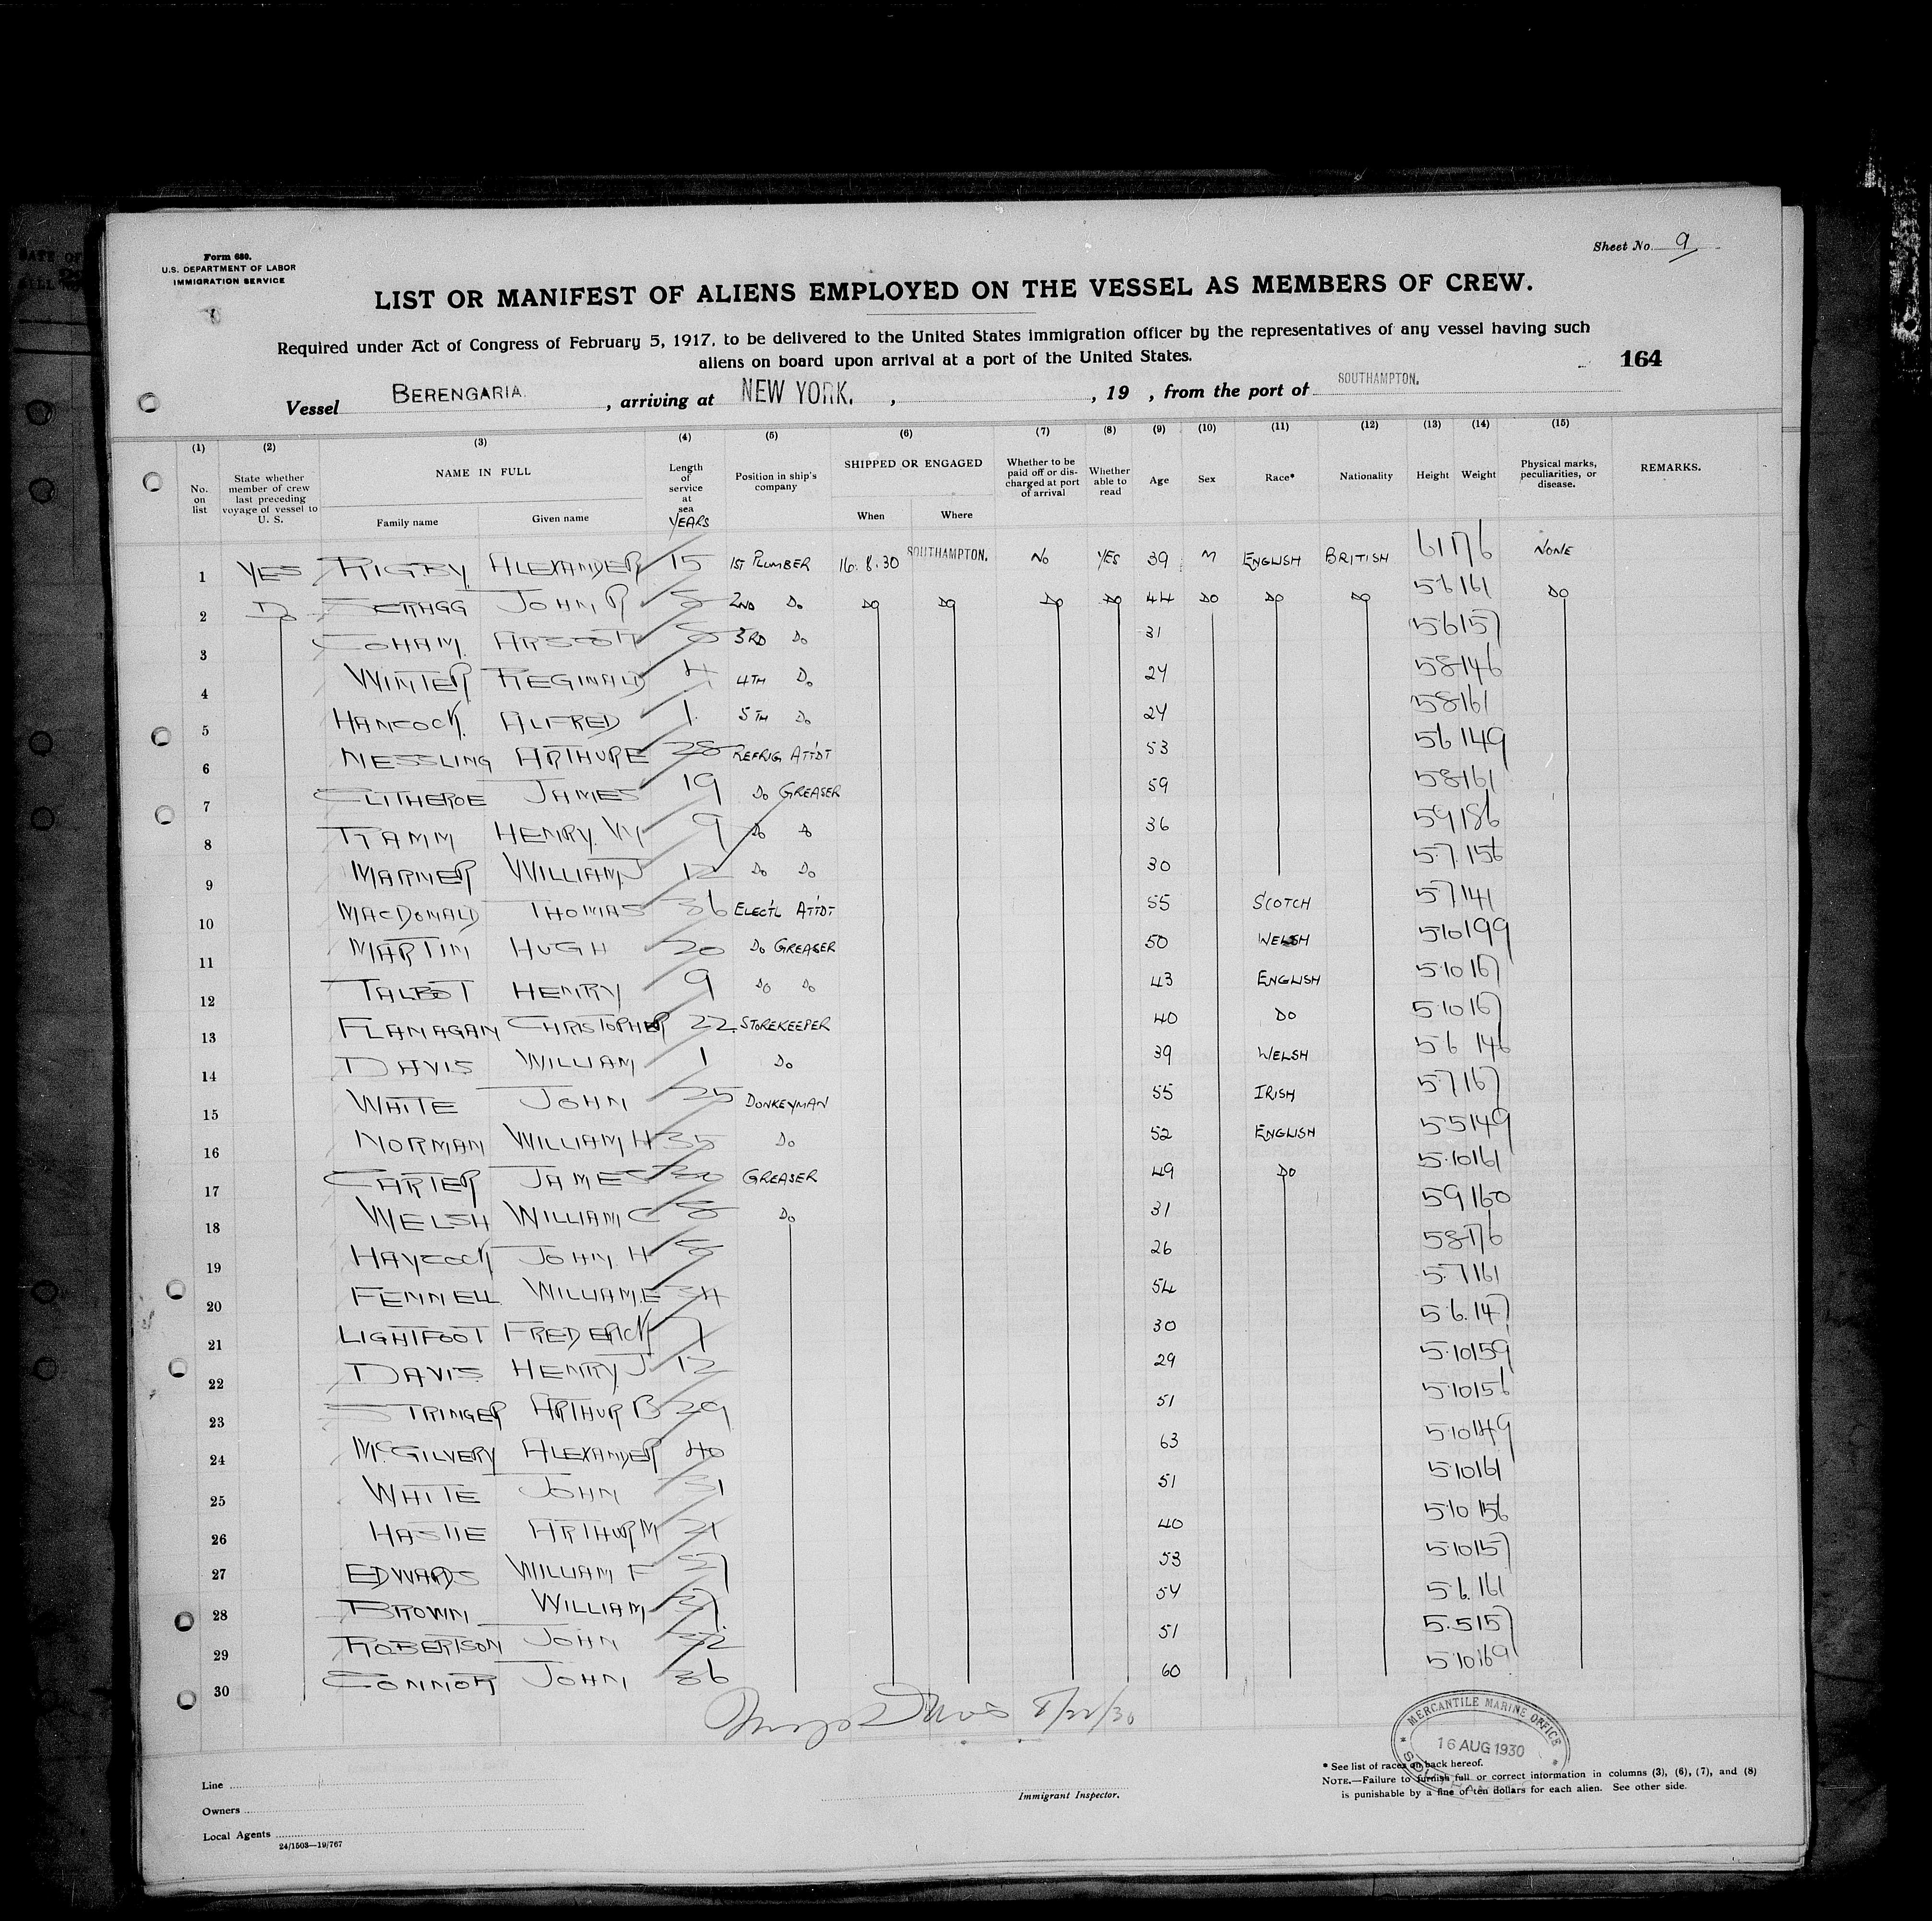 Sheet No. 9
Form 680.
U.S. DEPARTMENT OF LABOR
IMMIGRATION SERVICE
LIST OR MANIFEST OF ALIENS EMPLOYED ON THE VESSEL AS MEMBERS OF CREW.
Required under Act of Congress of February 5, 1917, to be delivered to the United States immigration officer by the representatives of any vessel having such
aliens on board upon arrival at a port of the United States.
164
Vessel BERENGARIA , arriving at NEW YORK. , , 19 , from the port of SOUTHAMPTON.
(1) (2) (3) (4) (5) (6) (7) (8) (9) (10) (11) (12) (13) (14) (15)
No. on list State whether member of crew last preceding voyage of vessel to U. S. NAME IN FULL Family name Given name Length of service at sea YEARS Position in ship's company SHIPPED OR ENGAGED When Where Whether to be paid off or discharged at port of arrival Whether able to read Age Sex Race* Nationality Height Weight Physical marks, peculiarities, or disease. REMARKS.
1 YES RIGBY ALEXANDER 15 1ST PLUMBER 16.8.30 SOUTHAMPTON. NO YES 39 M ENGLISH BRITISH 6 1 176 NONE
2 DO SCRAGG JOHN R 2ND DO DO DO DO DO 44 DO DO DO 5 6 161 DO
3 COHAM ARSCOTT 3RD DO 31 5 6 157
4 WINTER REGINALD 4 4TH DO 24 5 8 146
5 HANCOCK ALFRED 1 5TH DO 24 5 8 161
6 NESSLING ARTHUR E 28 REFRIG ATTDT 53 5 6 149
7 CLITHEROE JAMES 19 DO GREASER 59 5 8 161
8 TAMM HENRY W 9 DO DO 36 5 9 186
9 MARNER WILLIAM J 12 DO DO 30 5.7. 156
10 MACDONALD THOMAS 36 ELECT'L ATTDT 55 SCOTCH 5 7 141
11 MARTIN HUGH 20 DO GREASER 50 WELSH 5 10 199
12 TALBOT HENRY 9 DO DO 43 ENGLISH 5.10 167
13 FLANAGAN CHRISTOPHER 22 STOREKEEPER 40 DO 5.10 167
14 DAVIS WILLIAM 1 DO 39 WELSH 5 6 146
15 WHITE JOHN 25 DONKEYMAN 55 IRISH 5 7 167
16 NORMAN WILLIAM H 35 DO 52 ENGLISH 5 5 149
17 CARTER JAMES 30 GREASER 49 DO 5.10 161
18 WELSH WILLIAM C 8 DO 31 5 9 160
19 HAYCOCK JOHN H 26 5 8 176
20 FENNELL WILLIAM.E 34 54 5.7 161
21 LIGHTFOOT FREDERICK 7 30 5 6. 147
22 DAVIS HENRY J 12 29 5.10 159
23 STRINGER ARTHUR B 29 51 5.10 156
24 McGILVERY ALEXANDER 40 63 5.10 149
25 WHITE JOHN 31 51 5.10 161
26 HASTIE ARTHUR M 21 40 5.10 156
27 EDWARDS WILLIAM F 53 5.10 157
28 BROWN WILLIAM 54 5 6. 161
29 ROBERTSON JOHN 32 51 5.5 157
30 CONNOR JOHN 36 60 5 10 169
8/22/30
MERCANTILE MARINE OFFICE
16 AUG 1930
Line
Owners
Local Agents
24/1503—19/767
Immigrant Inspector.
* See list of races on back hereof.
NOTE.—Failure to furnish full or correct information in columns (3), (6), (7), and (8)
is punishable by a fine of ten dollars for each alien. See other side.